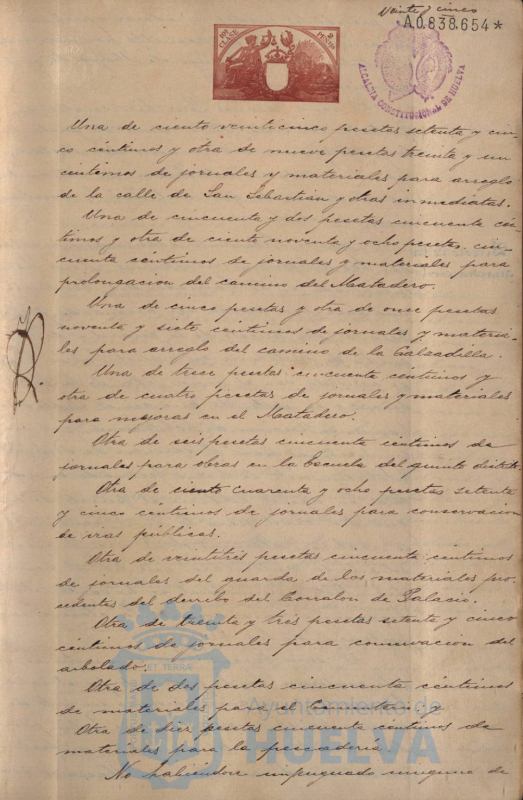 Veinte y cinco
A0.838.654*
100 CLASE 2 PESETAS
ALCALDIA CONSTITUCIONAL DE HUELVA
Una de ciento veinticinco pesetas setenta y cin-
co céntimos y otra de nueve pesetas treinta y un
céntimos de jornales y materiales para arreglo
de la calle de San Sebastian y otras inmediatas.
Una de cincuenta y dos pesetas cincuenta cén-
timos y otra de ciento noventa y ocho pesetas cin-
cuenta céntimos de jornales y materiales para
prolongacion del camino del Matadero.
Una de cinco pesetas y otra de once pesetas
noventa y siete céntimos de jornales y materia-
les para arreglo del camino de la Calzadilla.
Una de trece pesetas cincuenta céntimos y
otra de cuatro pesetas de jornales y materiales
para mejoras en el Matadero.
Otra de seis pesetas cincuenta céntimos de
jornales para obras en la Escuela del quinto distrito.
Otra de ciento cuarenta y ocho pesetas setenta
y cinco céntimos de jornales para conservacion
de vias públicas.
Otra de veintitrés pesetas cincuenta céntimos
de jornales del guarda de los materiales pro-
cedentes del derribo del Corralon de Palacio.
Otra de treinta y tres pesetas setenta y cinco
céntimos de jornales para conservacion del
arbolado.
Otra de dos pesetas cincuenta céntimos
de materiales para el Cementerio; y
Otra de diez pesetas cincuenta céntimos de
materiales para la pescadería.
No habiéndose impugnado ninguna de
ET TERRÆ
Ayuntamiento de
HUELVA